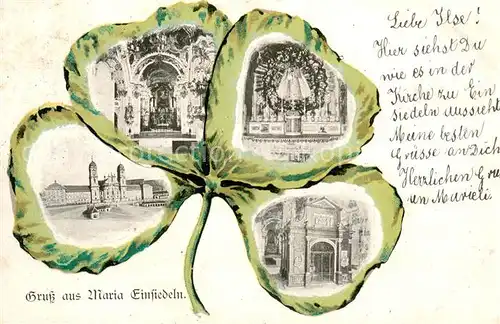 Liebe Ilse!
Hier siehst Du
wie es in der
Kirche zu Ein
siedeln aussieht
Meine besten
Grüsse an Dich
Herzlichen Gru
an Marieli
Gruß aus Maria Einsiedeln.